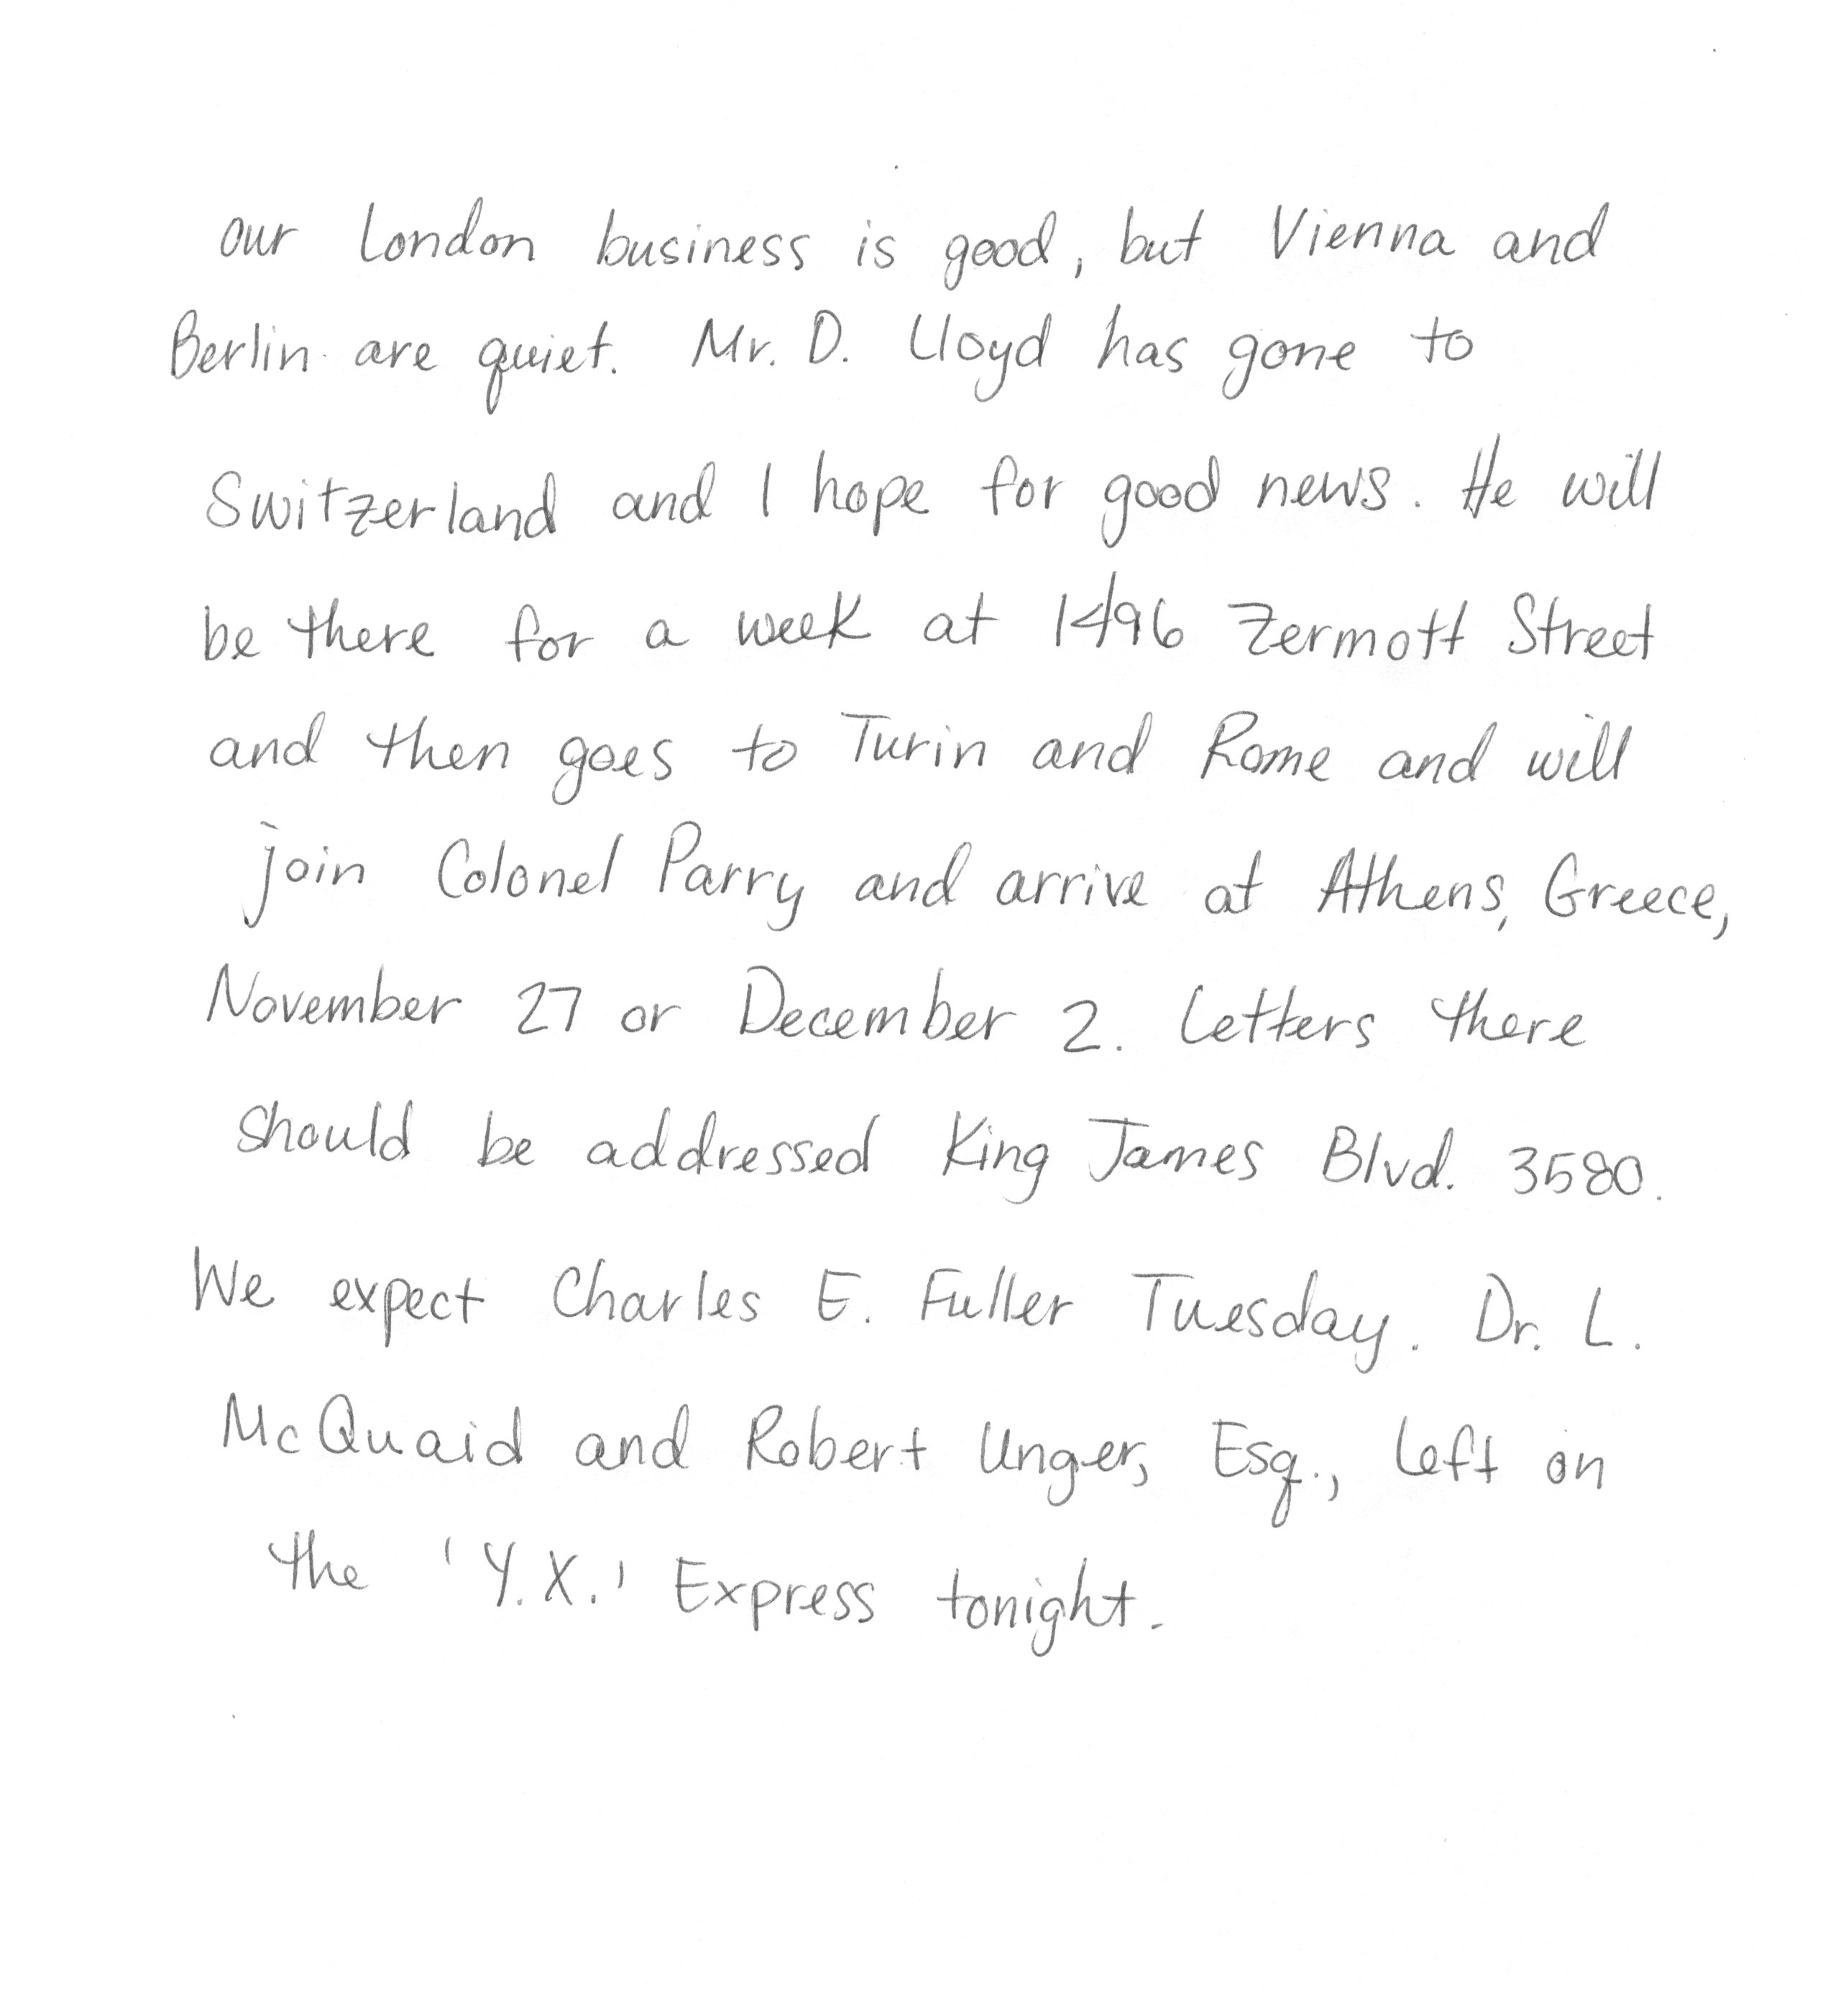 our London business is good, but Vienna and
Berlin are quiet. Mr. D. Lloyd has gone to
Switzerland and I hope for good news. He will
be there for a week at 1496 Zermott Street
and then goes to Turin and Rome and will
join Colonel Parry and arrive at Athens, Greece,
November 27 or December 2. Letters there
should be addressed King James Blvd. 3580.
We expect Charles E. Fuller Tuesday. Dr. L.
McQuaid and Robert Unger, Esq., left on
the 'Y.X.' Express tonight.